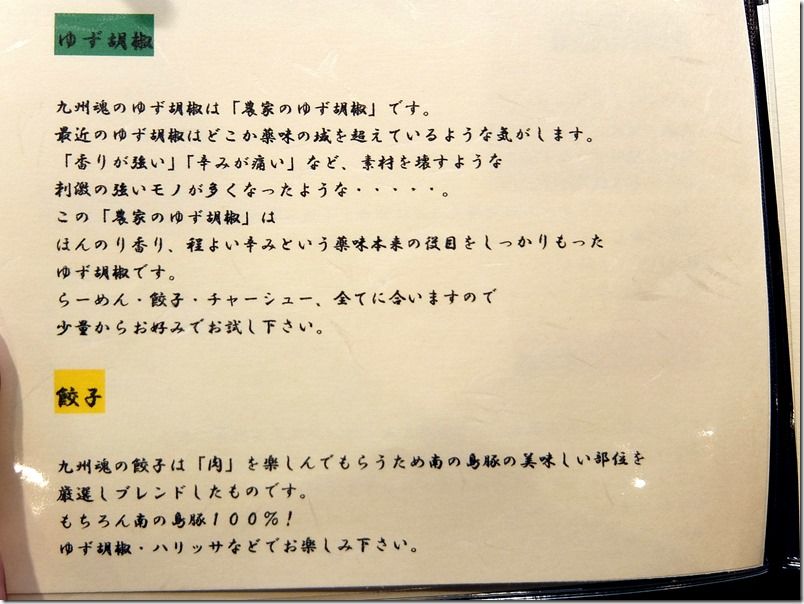 ゆず胡椒
九州魂のゆず胡椒は「農家のゆず胡椒」です。
最近のゆず胡椒はどこか薬味の域を超えているような気がします。
「香りが強い」「辛みが痛い」など、素材を壊すような
刺激の強いモノが多くなったような・・・・・。
この「農家のゆず胡椒」は
ほんのり香り、程よい辛みという薬味本来の役目をしっかりもった
ゆず胡椒です。
らーめん・餃子・チャーシュー、全てに合いますので
少量からお好みでお試し下さい。
餃子
九州魂の餃子は「肉」を楽しんでもらうため南の島豚の美味しい部位を
厳選しブレンドしたものです。
もちろん南の島豚１００％！
ゆず胡椒・ハリッサなどでお楽しみ下さい。